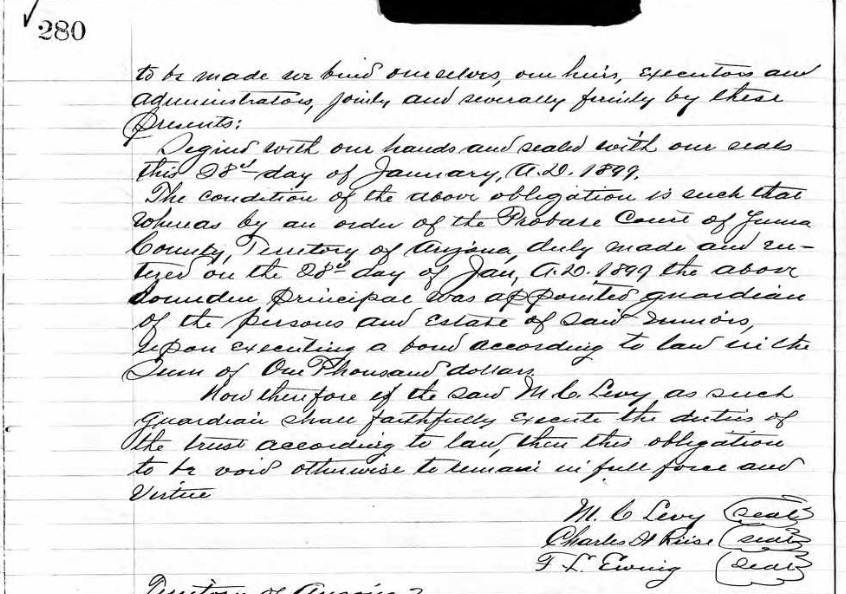 280
to be made we bind ourselves, our heirs, executors and
administrators, jointly and severally firmly by these
Presents:
Signed with our hands and sealed with our seals
this 28" day of January, A.D. 1899.
The condition of the above obligation is such that
whereas by an order of the Probate Court of Yuma
County, Territory of Arizona, duly made and en-
tered on the 28" day of Jan, A.D. 1899 the above
bounden principal was appointed guardian
of the persons and Estate of said minors,
upon executing a bond according to law in the
Sum of One Thousand dollars
Now therefore if the said M. C. Levy as such
guardian shall faithfully execute the duties of
the trust according to law, then this obligation
to be void otherwise to remain in full force and
Virtue
M. C Levy (seal)
Charles H (seal)
F L. Ewing (seal)
Territory of Arizona